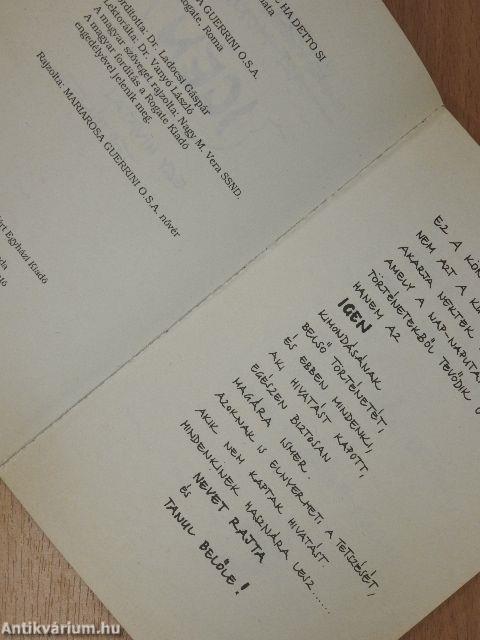 HA DETTO SI
GUERRINI O.S.A.
Rogate, Roma
Fordította: Dr. Ladocsi Gáspár
Lektorálta: Dr. Vanyó László
A magyar szöveget rajzolta: Nagy M. Vera SSND.
A magyar fordítás a Rogate Kiadó
engedélyével jelenik meg.
Rajzolta: MARIAROSA GUERRINI O.S.A. nővér
Egyházi Kiadó
EZ A
NEM AZT A
AKARJA NEKTEK
AMELY A NAP-NAPUTÁ
TÖRTÉNETEKBŐL TEVŐDIK
HANEM AZ
IGEN
KIMONDÁSÁNAK
BELSŐ TÖRTÉNETÉT,
ÉS EBBEN MINDENKI,
AKI HIVATÁST KAPOTT,
EGÉSZEN BIZTOSAN
MAGÁRA ISMER.
AZOKNAK IS ELNYERHETI A TETSZÉSÉT,
AKIK NEM KAPTAK HIVATÁST.
MINDENKINEK HASZNÁRA LESZ......
NEVET RAJTA
ÉS
TANUL BELŐLE!
Antikvárium.hu